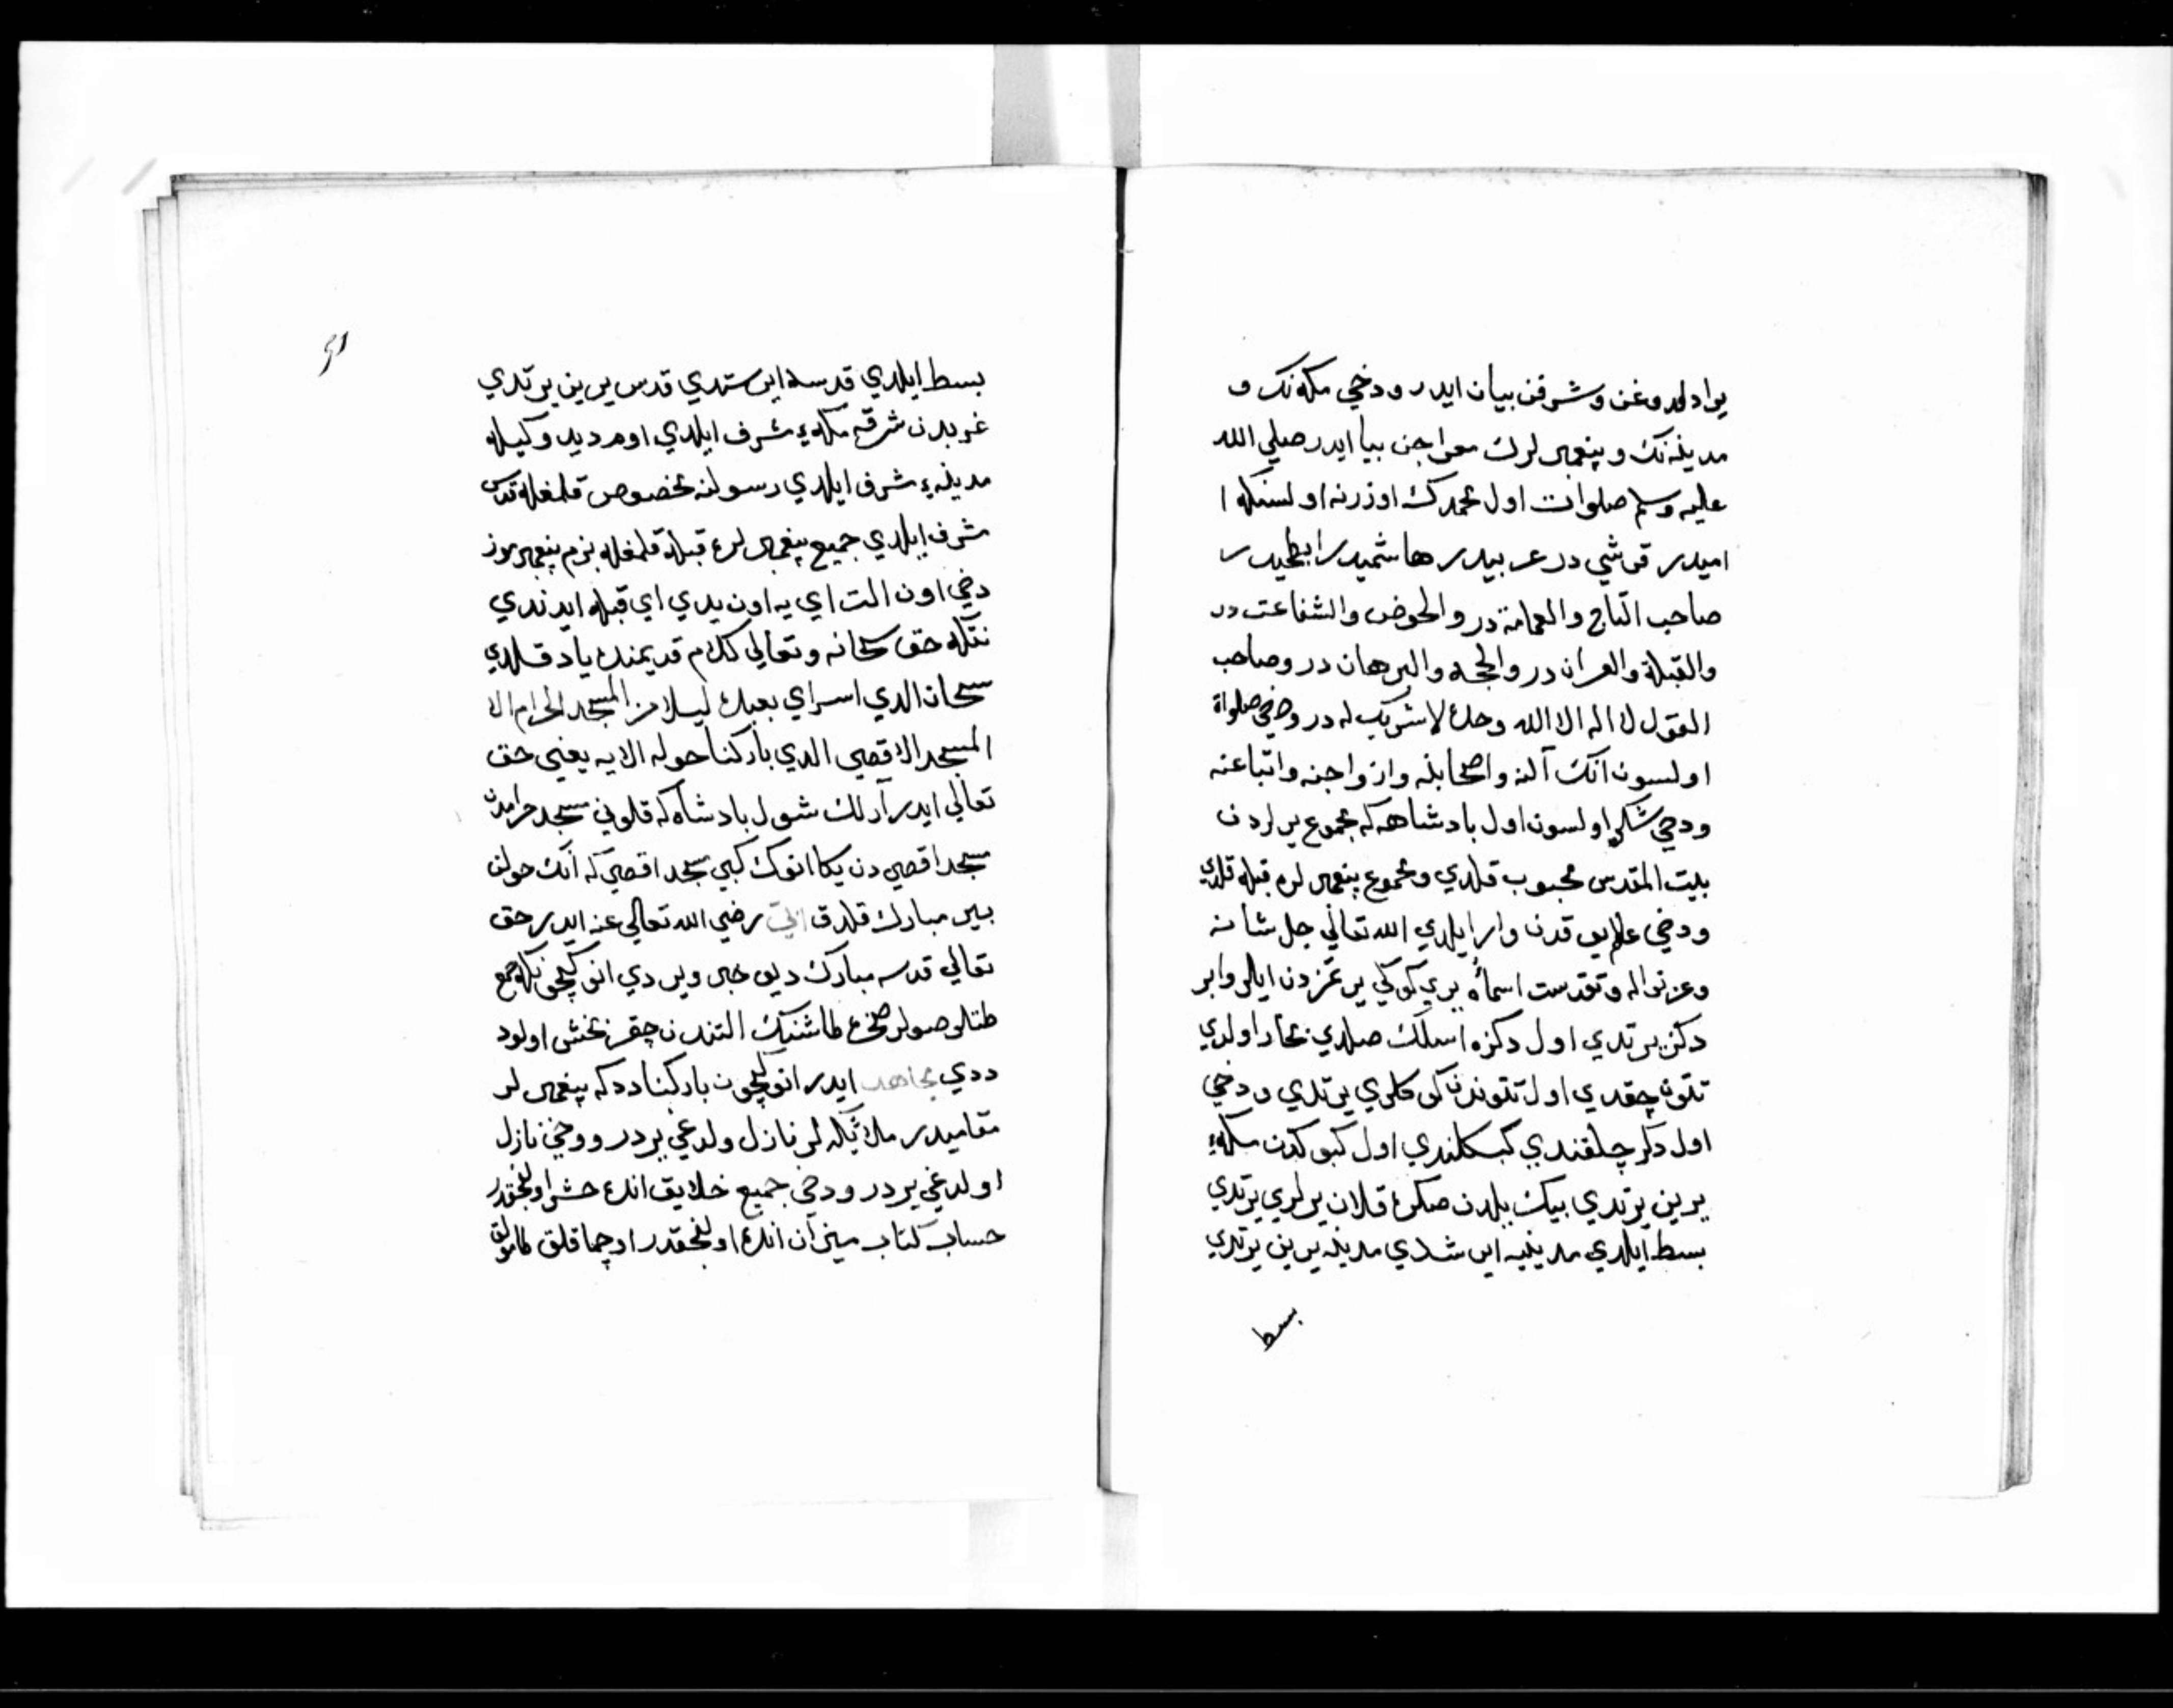 يرادلدوغن وشرفن بيان ايدر ودخي مكه نك و
مدينه نك وپيغمبرلرك معراجن بيا ايدر صلي الله
عليه وسلم صلوات اول محمدك اوزرنه اولسنكه ا
اميدر قرشي در عربيدر هاشميدر ابطحيدر
صاحب التاج والعمامة در والحوض والشفاعت در
والقبلة والقران در والحجه والبرهان در وصاحب
القول لا اله الا الله وحده لا شريك له در ودخي صلواة
اولسون انك آلنه واصحابنه وازواجنه واتباعنه
ودخي شكر اولسون اول پادشاهه كه مجموع يرلردن
بيت المقدس محبوب قلدي ومجموع پيغمبرلره قبله قلدي
ودخي علايق قدن وار ايلدي الله تعالي جل شانه
وعز نواله وتقدست اسماؤه يري كوكي ير دن ايلرو ابر
دكز يرتدي اول دكزه اسلك صلدي بخار اولدي
تتون چقدي اول تتوندن كوكلري يرتدي ودخي
اول دكز چلقندي كبكلندي اول كبوكدن مكه
يرين يرتدي بيك يلدن صكره قلان يرلري يرتدي
بسط ايلدي مدينيه ايرشدي مدينه يرين يرتدي
بسط
بسط ايلدي قدسه ايرشدي قدس يرين يرتدي
غربدن شرقه مكه ي مشرف ايلدي
مدينه ي مشرف ايلدي رسولنه مخصوص قلمغله قدس
مشرف ايلدي جميع پيغمبرلره قبله قلمغله بزم پيغمبرموز
دخي اون التي اي يه اون يدي اي قبله ايدندي
نتكه حق سبحانه وتعالي كلام قديمنده ياد قلدي
سبحان الذي اسراي بعبده ليلا من المسجد الحرام الا
المسجد الاقصي الذي باركنا حوله الايه يعني حق
تعالي ايدر آرلك شول پادشاه كه قلوني مسجد حرامدن
مسجد اقصي دن يكا انوك كبي مسجد اقصي كه انك حولن
بيز مبارك قلدق رضي الله تعالي عنه ايدر حق
تعالي قدسه مبارك ديو خبر ويردي انوكچون كه جمع
طتلو صولر صخره طاشنيك التندن چقر بخش اولود
ددي مجاهد ايدر انوكچون باركنا ددكه پيغمبرلر
مقاميدر ملائكه لر نازل ولدغي يردر ووحي نازل
اولدغي يردر ودخي جميع خلايق انده حشر اولنجقدر
حساب كتاب ميزان انده اولنجقدر اوچماقلق طامولق